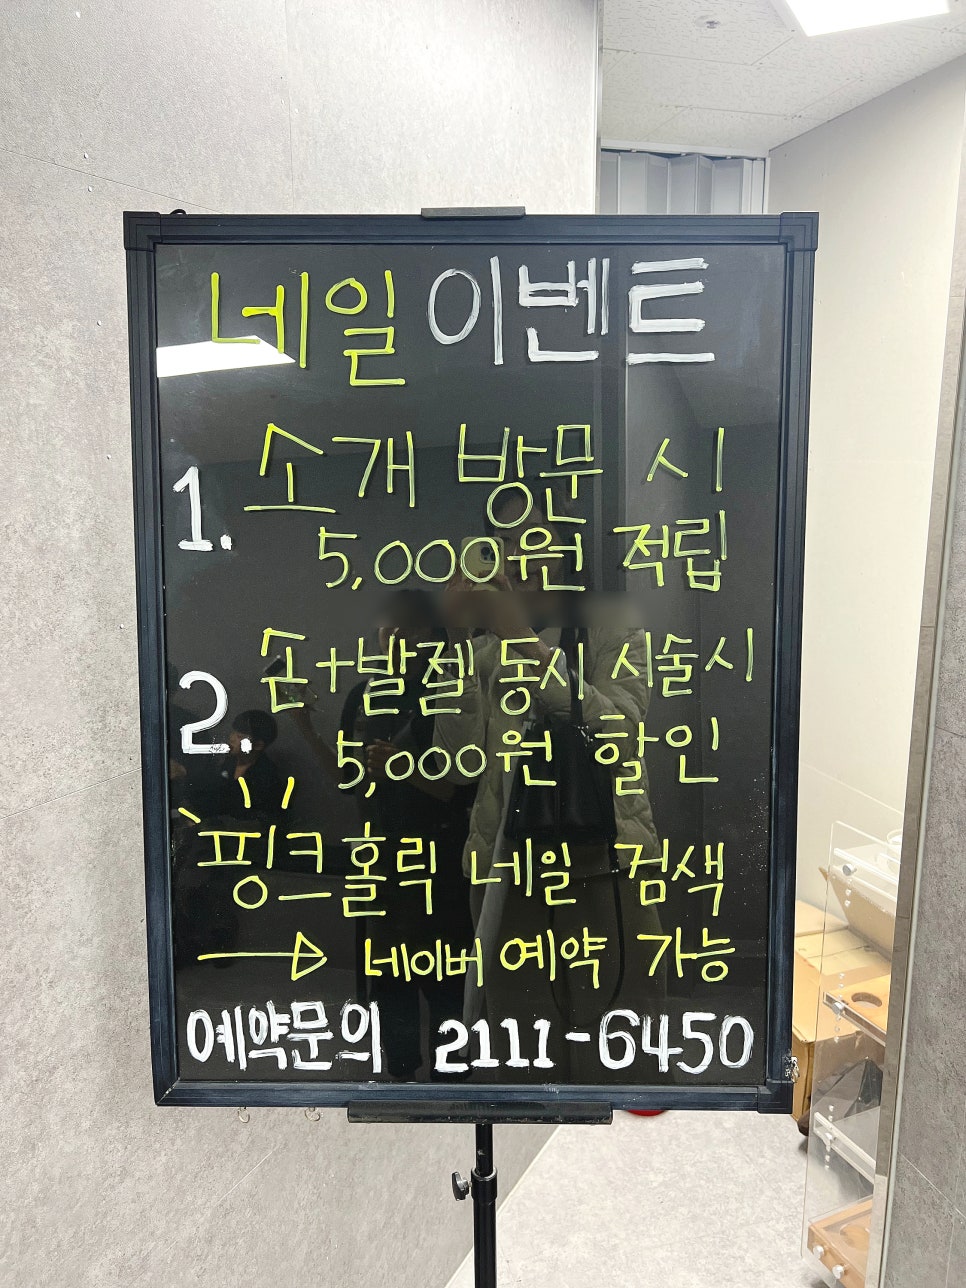 네일 이벤트
1. 소개 방문 시
5,000원 적립
2. 손+발젤 동시 시술시
5,000원 할인
핑크홀릭 네일 검색
→ 네이버 예약 가능
예약문의 2111-6450